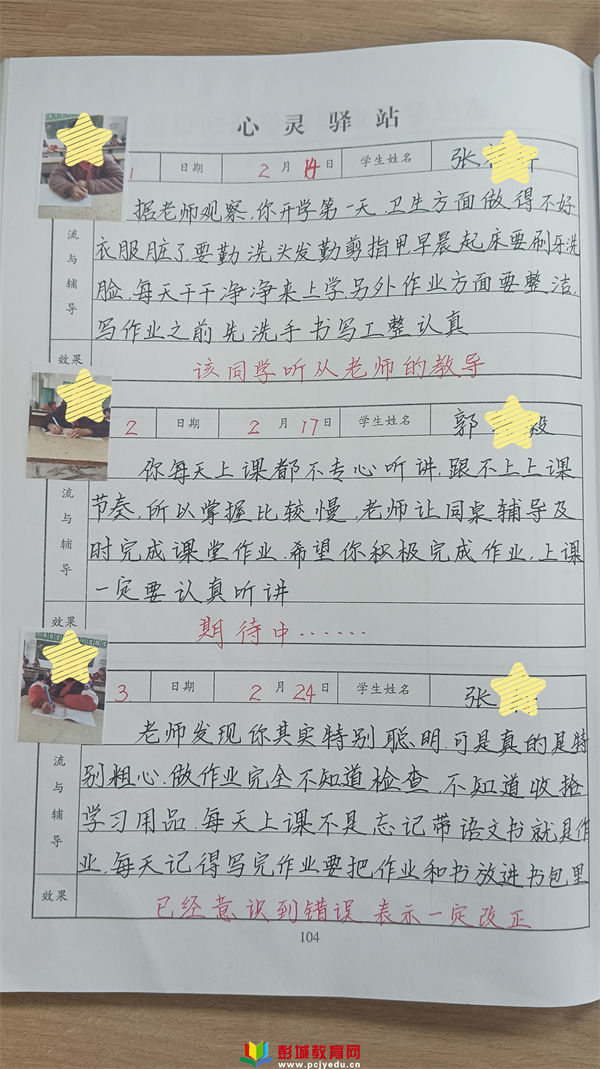 心灵驿站
1 日期 2月14日 学生姓名 张
据老师观察,你开学第一天,卫生方面做得不好
衣服脏了要勤洗头发勤剪指甲,早晨起床要刷牙洗
脸,每天干干净净来上学,另外作业方面要整洁,
写作业之前先洗手书写工整认真
流与辅导
效果 该同学听从老师的教导
2 日期 2月17日 学生姓名 郭 毅
你每天上课都不专心听讲,跟不上上课
节奏,所以掌握比较慢,老师让同桌辅导及
时完成课堂作业,希望你积极完成作业,上课
一定要认真听讲
流与辅导
效果 期待中……
3. 日期 2月24日 学生姓名 张
老师发现你其实特别聪明,可是真的是特
别粗心,做作业完全不知道检查,不知道收拾
学习用品,每天上课不是忘记带语文书就是作
业,每天记得写完作业要把作业和书放进书包里
流与辅导
效果 已经意识到错误 表示一定改正
104
彭城教育网
www.pcjyedu.cn